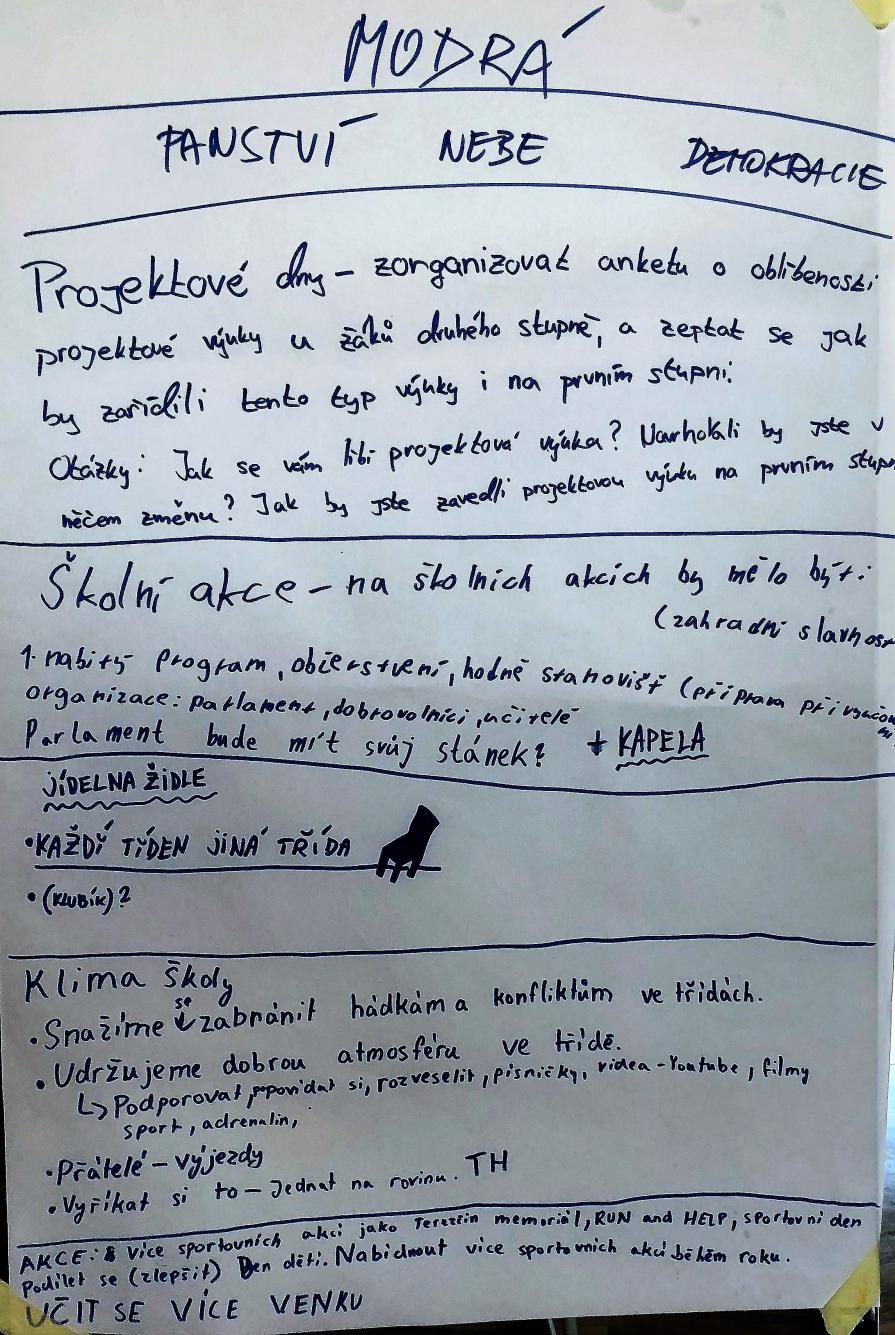 MODRÁ
PANSTVÍ NEBE DEMOKRACIE
Projektové dny – zorganizovat anketu o oblíbenosti
projektové výuky u žáků druhého stupně, a zeptat se jak
by zařídili tento typ výuky i na prvním stupni.
Otázky: Jak se vám líbí projektová výuka? Navrhovali by jste v
něčem změnu? Jak by jste zavedli projektovou výuku na prvním stupn
Školní akce – na školních akcích by mělo být:
(zahradní slavnost
1. nabitý program, občerstvení, hodně stanovišť (příprava při
organizace: parlament, dobrovolníci, učitelé
Parlament bude mít svůj stánek? + KAPELA
JÍDELNA ŽIDLE
• KAŽDÍ TÍDEN JINÁ TŘÍDA
• (KLUBÍK)?
Klima školy
• Snažíme se zabránit hádkám a konfliktům ve třídách.
• Udržujeme dobrou atmosféru ve třídě.
↳ Podporovat, popovídat si, rozveselit, písničky, videa - Youtube, filmy
sport, adrenalin,
• Přátelé – výjezdy
• Vyříkat si to – Jednat na rovinu. TH
AKCE: Více sportovních akcí jako Terezčin memoriál, RUN and HELP, sportovní den
Podílet se (zlepšit) Den dětí. Nabídnout více sportovních akcí během roku.
UČIT SE VÍCE VENKU